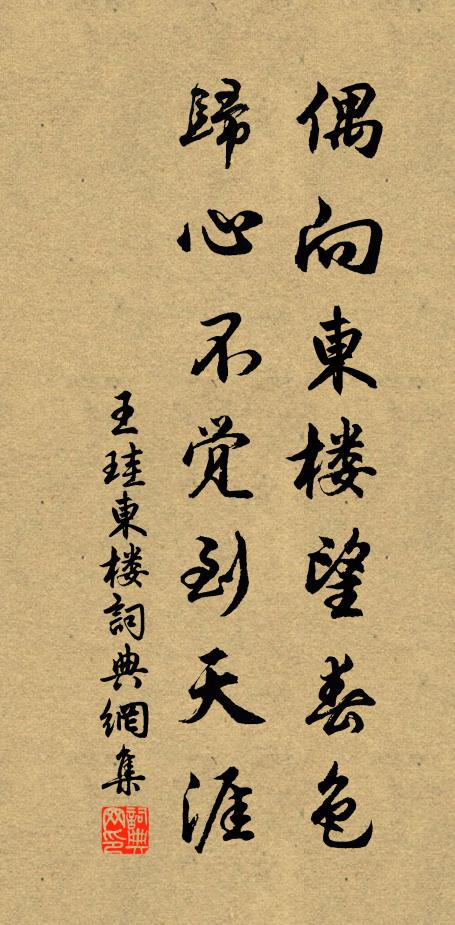 偶向東楼望春色
歸心不觉到天涯
王珪東楼詞典網集
詞典网印